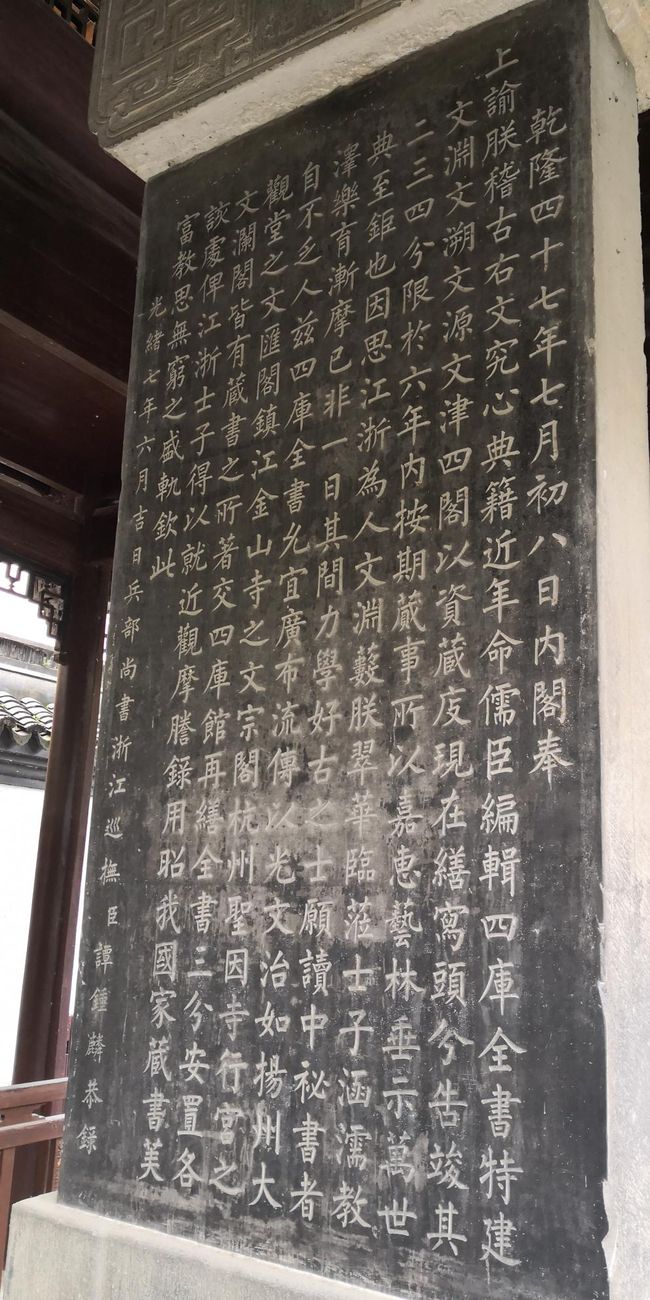 乾隆四十七年七月初八日内閣奉
上諭朕稽古右文究心典籍近年命儒臣編輯四庫全書特建
文淵文溯文源文津四閣以資藏庋現在繕寫頭分告竣其
二三四分限於六年内按期蕆事所以嘉惠藝林垂示萬世
典至鉅也因思江浙為人文淵藪朕翠華臨蒞士子涵濡教
澤樂育漸摩已非一日其間力學好古之士願讀中祕書者
自不乏人兹四庫全書允宜廣布流傳以光文治如揚州大
觀堂之文匯閣鎮江金山寺之文宗閣杭州聖因寺行宮之
文瀾閣皆有藏書之所著交四庫館再繕全書三分安置各
該處俾江浙士子得以就近觀摩謄錄用昭我國家藏書美
富教思無窮之盛軌欽此
光緒七年六月吉日兵部尚書浙江巡撫臣譚鍾麟恭錄